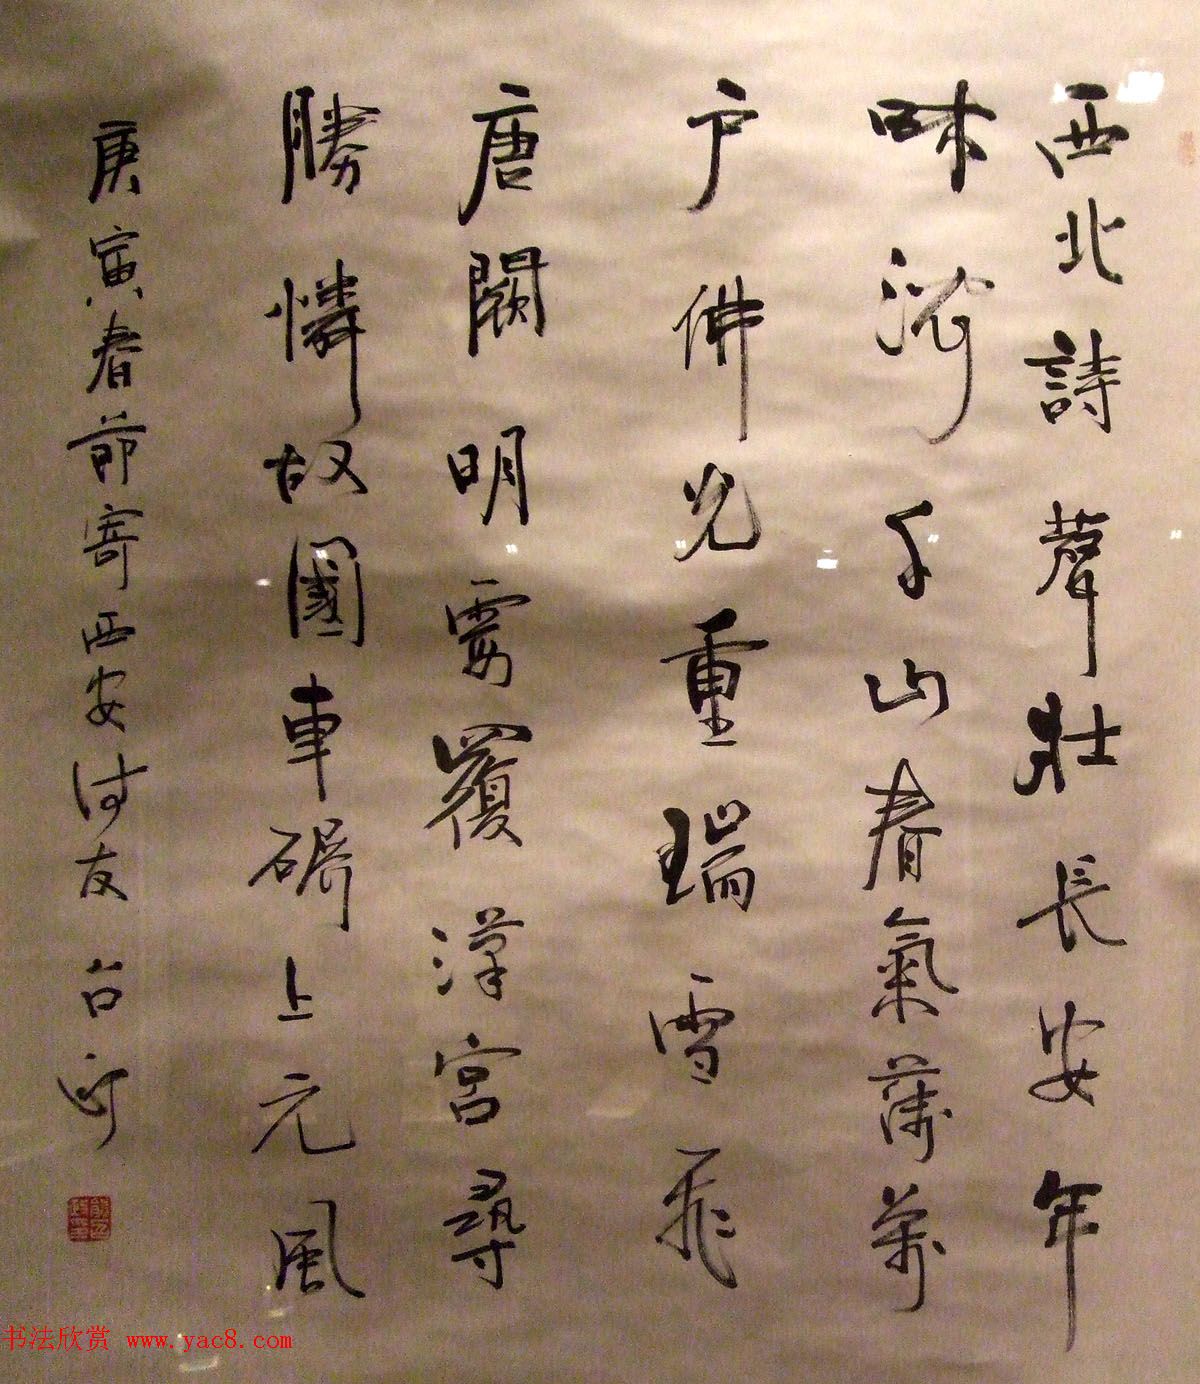 西北詩聲壯長安年
味浓千山春氣滿萬
户佛光重瑞雪飛
唐闕明霞覆漢宮尋
勝憐故國車碾上元風
庚寅春節寄西安诗友
书法欣赏 www.yac8.com